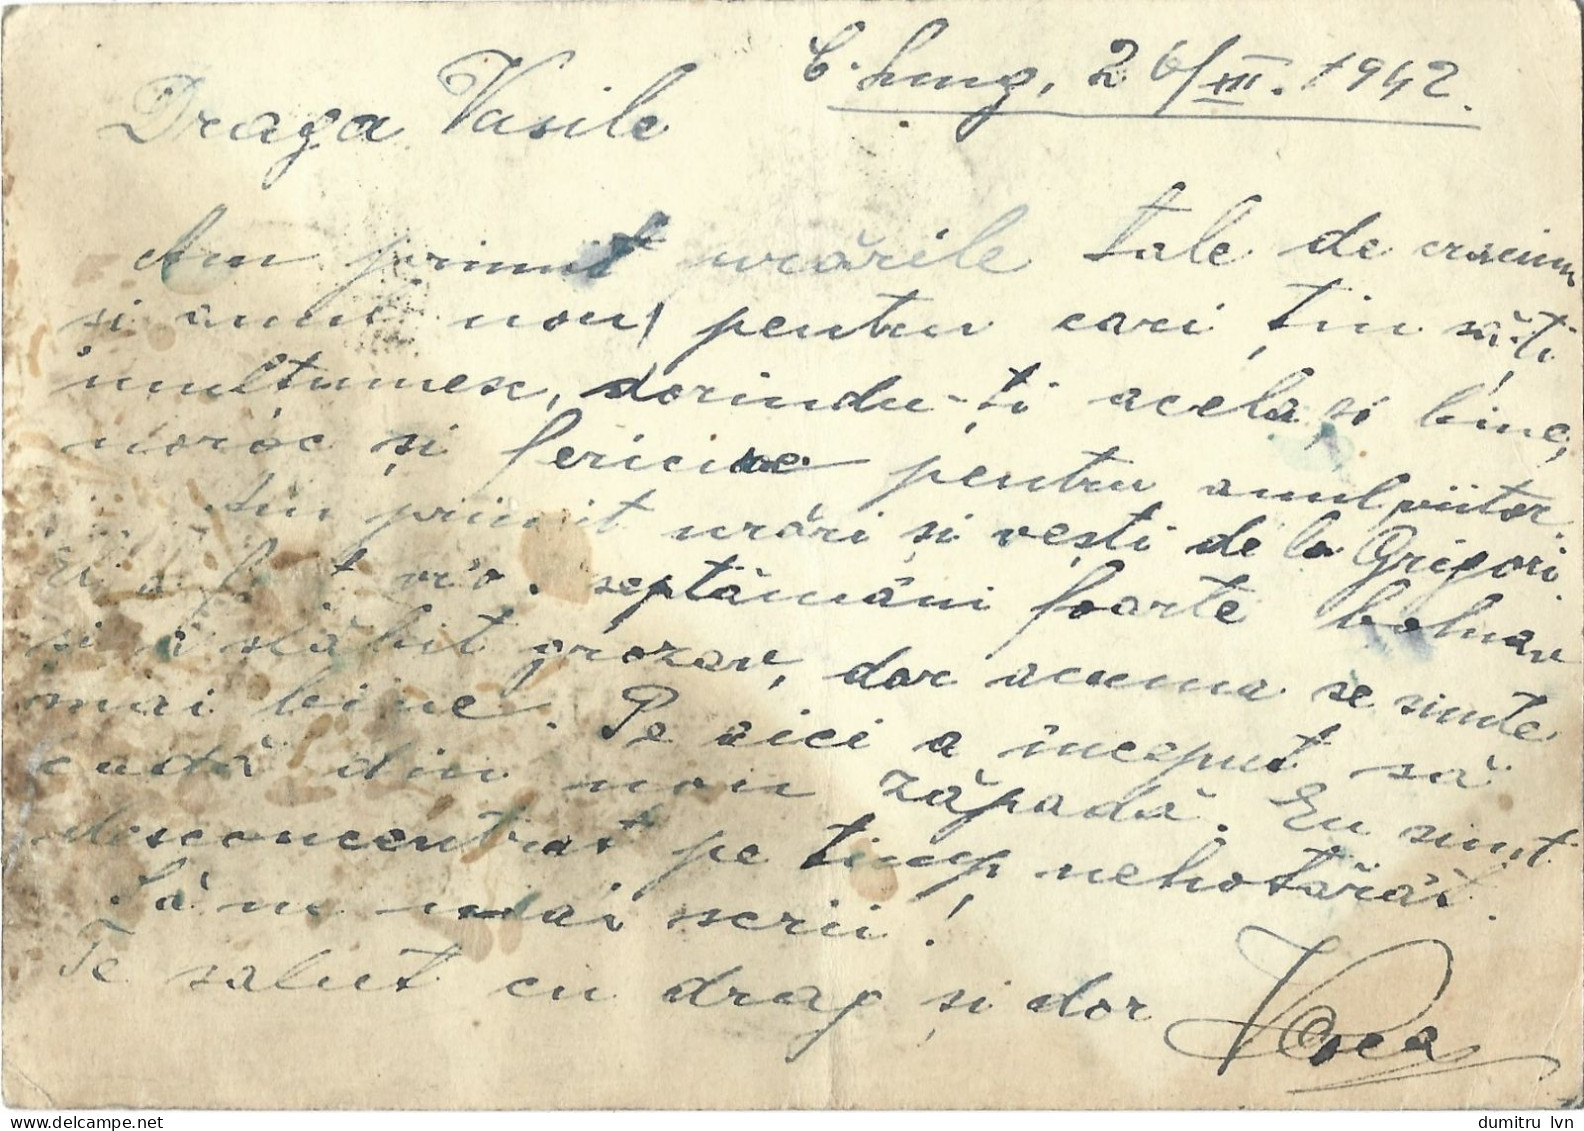 C. Lung, 26/XII. 1942.
Draga Vasile
Am primit urările tale de craciun
și anul nou, pentru cari țin să-ți
multumesc, dorindu-ți acelaşi bine,
noroc și fericire pentru anul viitor.
Am primit urări și vești de la Grigori.
El a fost vr'o. septămâni foarte bolnav
si a slăbit grozav, dar acuma se simte
mai bine. Pe aici a inceput să
cadă din nou zăpadă. Eu sunt
desconcentrat pe timp nehotărât.
Să ne mai scrii!
Te salut cu drag și dor
dumitru lvn